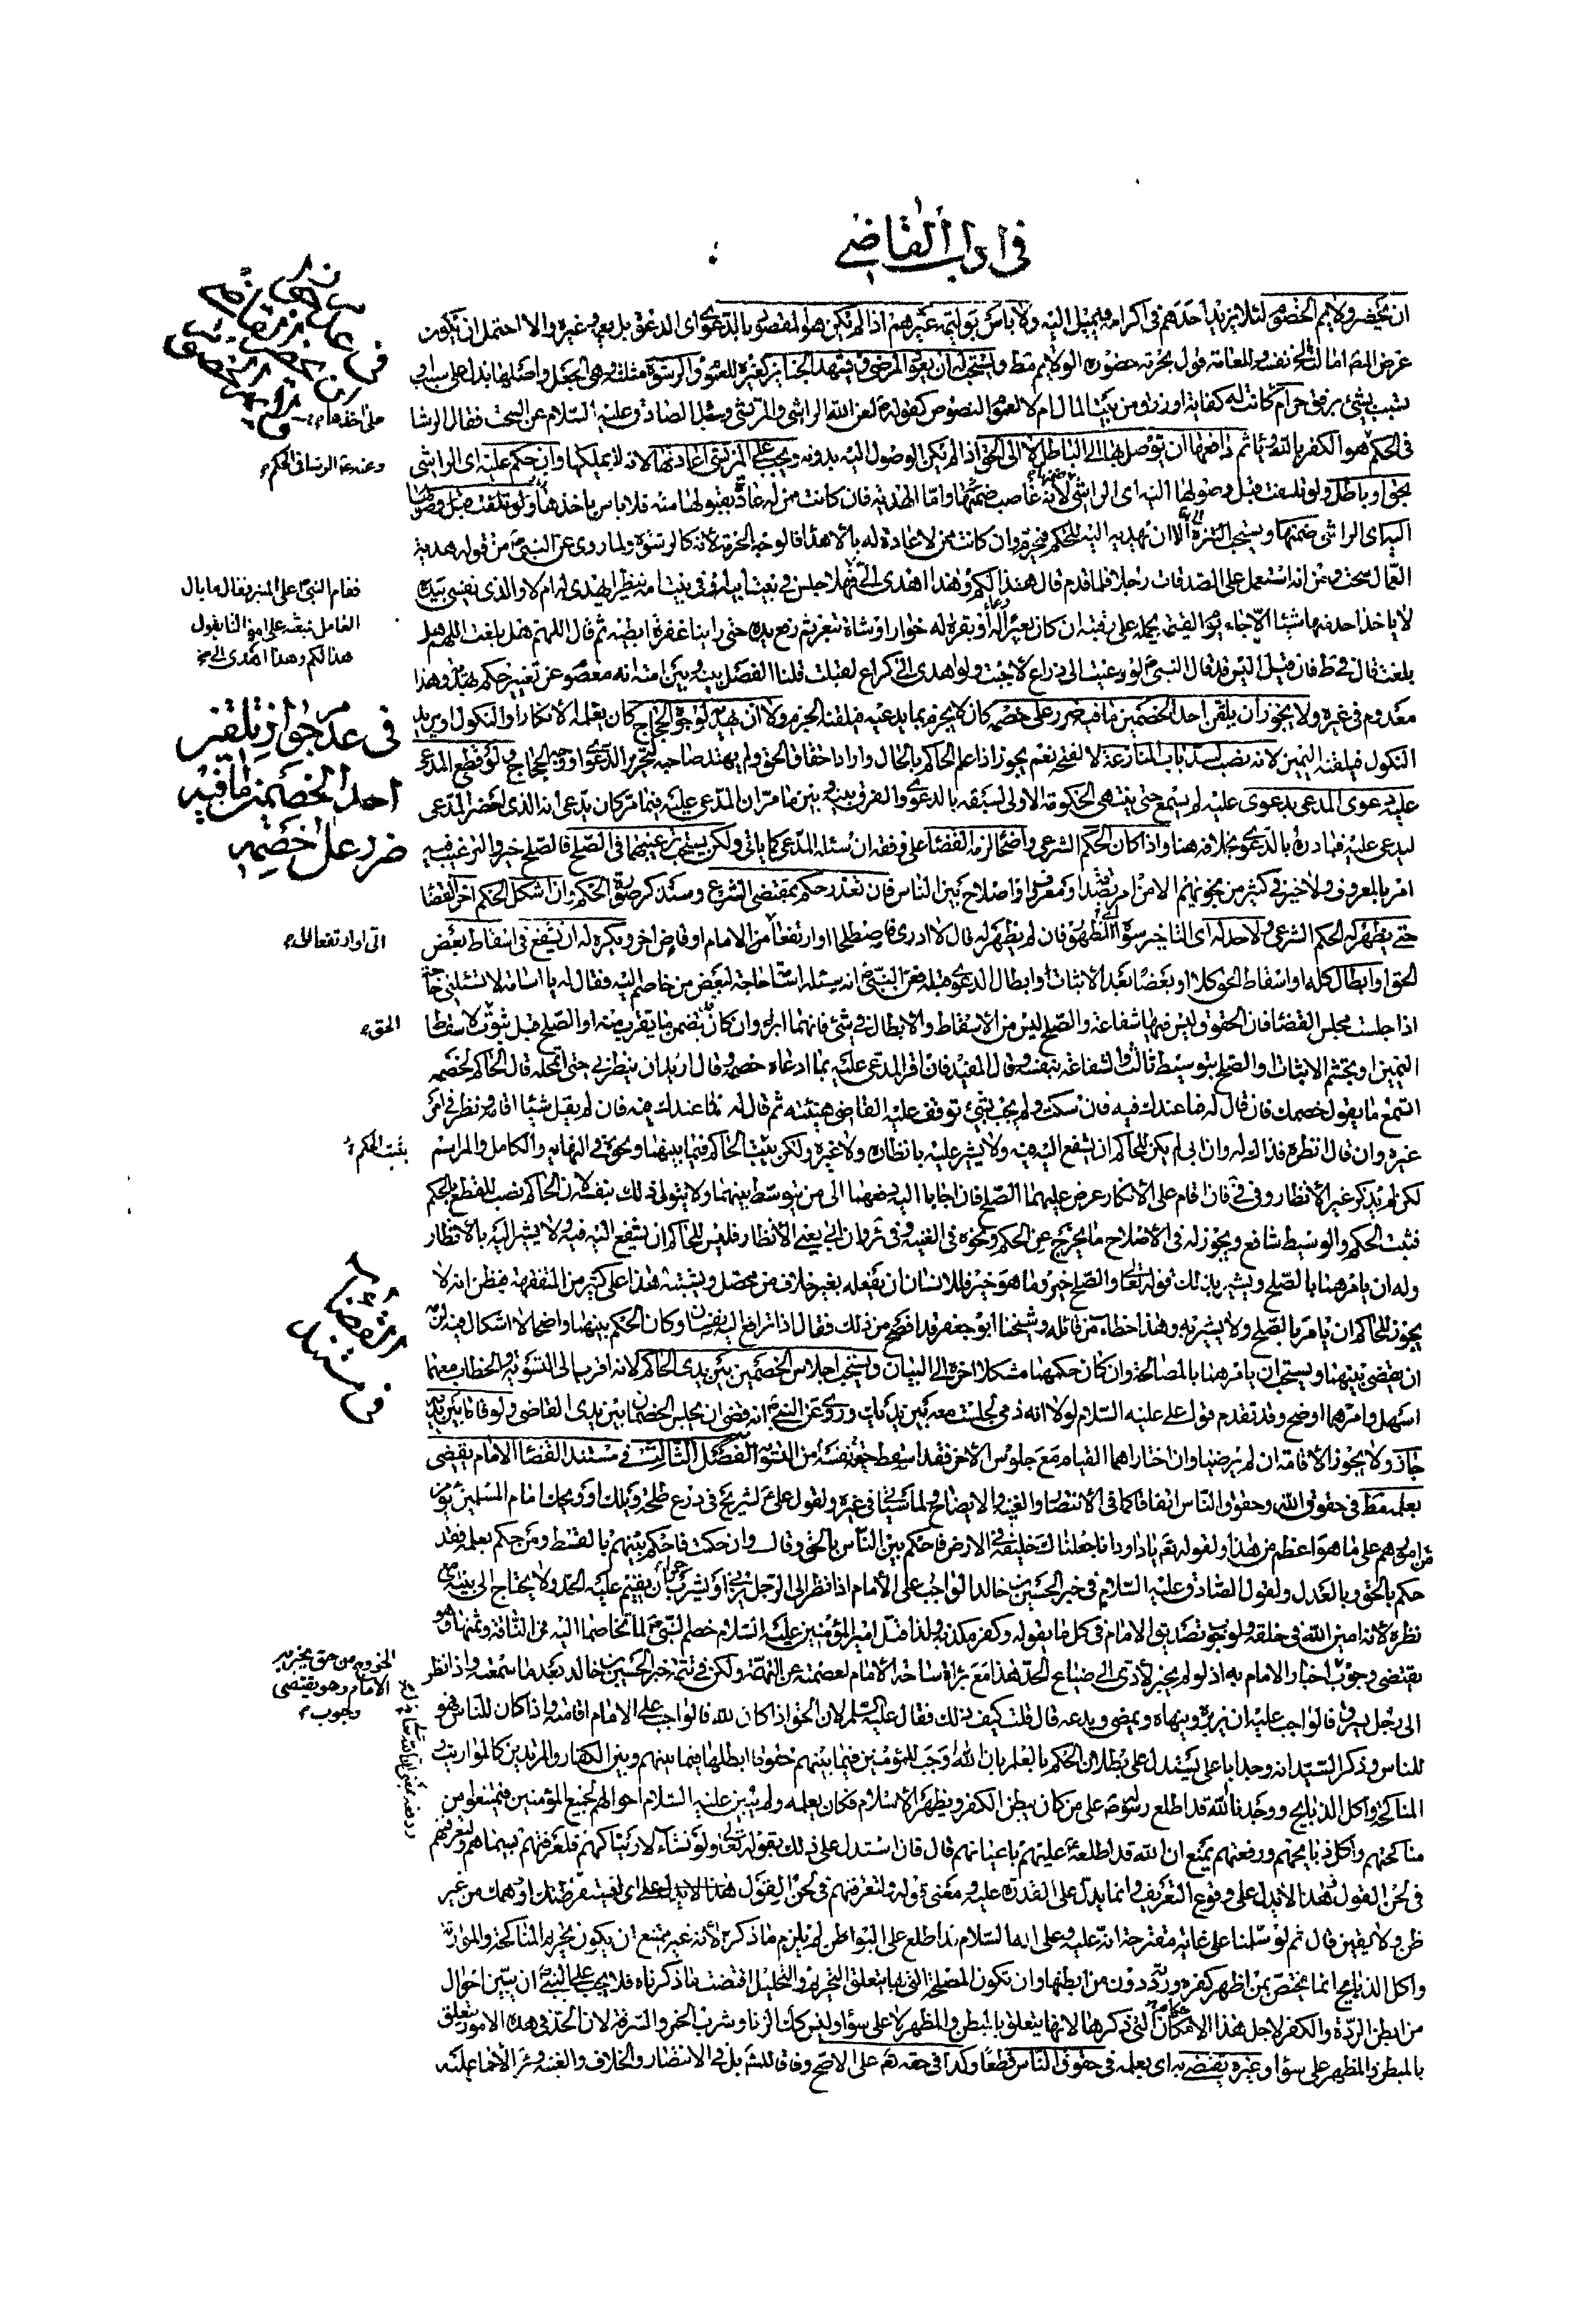 في اداب القاضي
ان يحضر ولايم الخصوم لئلا يزيد احدهم في اكرامه فيميل اليه ولا باس بوليمة غيرهم اذا لم يكن هو المقصود بالدعوة اى الدعوة بل يعمه وغيره والا احتمل ان يكون
غرض المضاف
بشيب بشئ يرفق حرام كانت له كفاية او رزق من بيت المال ام لا لعموم النصوص كقوله لعن الله الراشي والمرتشي وسئل الصادق عليه السلام عن السحت فقال الرشا
في الحكم هو الكفر بالله وياثم دافعها ان توصل بها الى الباطل لا الى الحق اذا لم يكن الوصول اليه بدونه ويجب على المرتشي اعادتها لانه لا يملكها وان حكم عليه اى الراشي
بحق او باطل ولو تلفت قبل وصولها اليه اى الراشي لانه غاصب ضمنها واما الهدية فان كانت ممن له عادة بقبولها منه فلا باس باخذها ولو تلفت قبل وصولها
الى اى الراشي ضمنها ويستحب التنزه الا ان يهديه اليه للحكم فيحرم وان كانت ممن لا عادة له بالاهداء فالوجه الحرمة لانه كالرشوة ولما روى عن النبي من قوله هدية
العمال سحت ومن انه استعمل على الصدقات رجلا فلما قدم قال هذا لكم وهذا اهدى الي فهلا جلس في بيت ابيه او في بيت امه ينظر ايهدى له ام لا والذى نفسي بيده
لا ياخذ احد منها شيئا الا جاء يوم القيمة يحمله على رقبته ان كان بعيرا له رغاء او بقرة له خوار او شاة تيعر ثم رفع يده حتى راينا عفرة ابطيه ثم قال اللهم هل بلغت اللهم هل
بلغت قال في ط فان قيل اليس قد قال النبي لو دعيت الى ذراع لاجبت ولو اهدى الي كراع لقبلت قلنا الفصل بينه وبين امته انه معصوم عن تغيير حكم بهدية وهذا
معدوم في غيره ولا يجوز ان يلقن احد الخصمين ما فيه ضرر على خصمه كان لا يجزم بما يدعيه فيلقنه الجزم ولا ان يهديه لوجوه الحجاج كان يعلمه الانكار او النكول او يريد
النكول فيلقنه اليمين لانه نصب لسد باب المنازعة لا لفتحه نعم يجوز اذا علم الحاكم بالحال واراد احقاق الحق ولم يهتد صاحبه لتحرير الدعوى او وجه الحجاج ولو قطع المدعى
عليه دعوى المدعي بدعوى عليه لم يسمع حتى ينتهي الحكومة الاولى لسبقه بالدعوى والفرق بينه وبين ما مر ان المدعى عليه فيما مر كان يدعى انه الذى احضر المدعى
ليدعى عليه فبادره بالدعوى بخلافه هنا واذا كان الحكم الشرعي واضحا لزمه القضاء على وفقه ان سئله المدعي كما ياتي ولكن يستحب ترغيبهما في الصلح فالصلح خير والترغيب فيه
امر بالمعروف ولا خير في كثير من نجويهم الا من امر بصدقة او معروف او اصلاح بين الناس فان تعذر حكم بمقتضى الشرع وسنذكر صورة الحكم وان اشكل الحكم اخر القضا
حتى يظهر له الحكم الشرعي ولا حد له اى التاخير سوى الظهور فان لم يظهر له قال لا ادرى فاصطلحا او ارتفعا من الامام او قاض اخر ويكره له ان يشفع في اسقاط بعض
الحق او ابطال كله او اسقاط الحق كلا او بعضا بعد الاثبات وابطال الدعوى قبله فعن النبي انه سئله اسامة حاجة لبعض من خاصم اليه فقال له يا اسامة لا تسئلني حاجة
اذا جلست مجلس القضا فان الحقوق ليس فيها شفاعة والصلح ليس من الاسقاط والابطال في شئ فانهما ابراء وان كان يتضمن ما يقرب منه او الصلح قبل ثبوت لاسقطا
اليمين او تجشم الاثبات او الصلح بتوسيط ثالث والشفاعة بنفسه وقال المفيد فان اقر المدعى عليه بما ادعاه خصمه وقال اريد ان ينظرني حتى اتمحله قال الحاكم لخصمه
اتسمع ما يقول خصمك فان قال له ما عندك فيه فان سكت ولم يجب بشئ توقف عليه القاضي هنيئة ثم قال له ما عندك فيه فان لم يقل شيئا اقامه ونظر في امر
غيره وان قال انظره فذاك له وان ابى لم يكن للحاكم ان يشفع اليه فيه ولا يشير عليه بانظاره ولا غيره ولكن يبت الحاكم فيما بينهما ونحوه في النهايه والكامل والمراسم
لكن لم يذكر غير الانظار وفي في فان اقام على الانكار عرض عليهما الصلح فان اجابا اليه دفعهما الى من يتوسط بينهما ولا يتولى ذلك بنفسه لان الحاكم نصب للقطع بالحكم
فثبت الحكم والوسيط شافع ويجوز له في الاصلاح ما يخرج عن الحكم ونحوه في الغنية وفي ئر وان ابى يعنى الانظار فليس للحاكم ان يشفع اليه فيه ولا يشير اليه بالانظار
وله ان يامرهما بالصلح ويشير بذلك قوله تعالى والصلح خير وما هو خير فللانسان ان يفعله بغير خلاف من محصل ويشتبه هذا على كثير من المتفقهة فيظن انه لا
يجوز للحاكم ان يامر بالصلح ولا يشير به وهذا خطاء من قائله وشيخنا ابو جعفر قد افصح من ذلك فقال اذا ترافع اليه نفسان وكان الحكم بينهما واضحا لا اشكال فيه لزمه
ان يقضي بينهما ويستحب ان يامرهما بالمصالحة وان كان حكمهما مشكلا اخره الى البيان ويستحب اجلاس الخصمين بين يدى الحاكم لانه اقرب الى التسوية والخطاب معهما
اسهل وامرهما اوضح وقد تقدم قول علي عليه السلام لولا انه ذمي لجلست معه بين يديك وروى عن النبي انه قضى ان يجلس الخصمان بين يدى القاضي ولو قاما بين يديه
جاز ولا يجوز الاقامة ان لم يرضيا وان اختار احدهما القيام مع جلوس الاخر فقد اسقط حق نفسه من التسوية الفصل الثالث في مستند القضاء الامام يقضى
بعلمه مطلقا في حقوق الله وحقوق الناس اتفاقا كما في الانتصار والغنية والايضاح ولما سياتي في غيره ولقول علي لشريح في درع طلحة ويلك او ويحك امام المسلمين يؤمن
من امورهم على ما هو اعظم من هذا ولقوله تعالى يا داود انا جعلناك خليفة في الارض فاحكم بين الناس بالحق وقال وان حكمت فاحكم بينهم بالقسط ومن حكم بعلمه فقد
حكم بالحق وبالعدل ولقول الصادق عليه السلام في خبر الحسين بن خالد الواجب على الامام اذا نظر الى الرجل يزني او يشرب خمرا ان يقيم عليه الحد ولا يحتاج الى بينة مع
نظره لانه امين الله في خلقه ولوجوب تصديق الامام في كل ما يقوله وكفر مكذبه ولذا قتل امير المؤمنين عليه السلام خصم النبي لما تخاصما اليه في الناقة وثمنها وهو
يقتضي وجوب اخبار الامام به اذ لو لم يخبر لادى الى ضياع الحد هذا مع براءة ساحة الامام لعصمته عن التهمة ولكن في تتمة خبر الحسين بن خالد بعد ما سمعته واذا نظر
الى رجل يسرق فالواجب عليه ان يزبره وينهاه ويمضي ويدعه قال قلت كيف ذلك فقال عليه السلم لان الحق اذا كان لله فالواجب على الامام اقامته واذا كان للناس فهو
للناس وذكر السيد انه وجد ابا علي يستدل على بطلان الحكم بالعلم بان الله اوجب للمؤمنين فيما بينهم حقوقا ابطلها فيما بينهم وبين الكفار والمرتدين كالمواريث و
المناكحة واكل الذبايح ووجدنا الله قد اطلع رسوله على من كان يبطن الكفر ويظهر الاسلام فكان يعلمه ولم يبين عليه السلام احوالهم لجميع المؤمنين فيمتنعوا من
مناكحتهم واكل ذبايحهم ودفعهم يمنع ان الله قد اطلعه عليهم باعيانهم قال فان استدل على ذلك بقوله تعالى ولو نشاء لاريناكهم فلعرفتهم بسيماهم ولتعرفنهم
في لحن القول فهذا لا يدل على وقوع التعريف وانما يدل على القدرة عليه ومعنى قوله ولتعرفنهم في لحن القول
ظن ولا يقين قال ثم لو سلمنا على غاية مقترحة انه عليه وعلى اله السلام قد اطلع على البواطن لم يلزم ما ذكره لانه غير ممتنع ان يكون تحريم المناكحة والموارثة
واكل الذبايح انما يختص بمن اظهر كفره وردته دون من ابطنها وان تكون المصلحة التي بها يتعلق التحريم والتحليل اقتضت ما ذكرناه فلا يجب على النبي ان يبين احوال
من ابطن الردة والكفر لاجل هذا الاحكام التي ذكرها لانها يتعلق بالمبطن والمظهر لا على سواء وليس كذلك الزنا وشرب الخمر والسرقة لان الحد في هذه الامور يتعلق
بالمبطن والمظهر على سواء وغيره يقضى به اى بعلمه في حقوق الناس قطعا وكذا في حقه تعالى على الاصح وفاقا للشيخ بل في الانتصار والخلاف والغنية وئر الاجماع عليه
على اخذها
وعنه الرشا في الحكم
فقام النبي على المنبر فقال ما بال
العامل نبعثه على امرنا يقول
هذا لكم وهذا اهدى الي
في عدم جواز تلقين
احد الخصمين ما فيه
ضرر على خصمه
اى او ارتفعا الى
الحق
يثبت الحكم
في مستند القضا
الخروج من حق يخبر به
الامام وهو يقتضي
وجوب